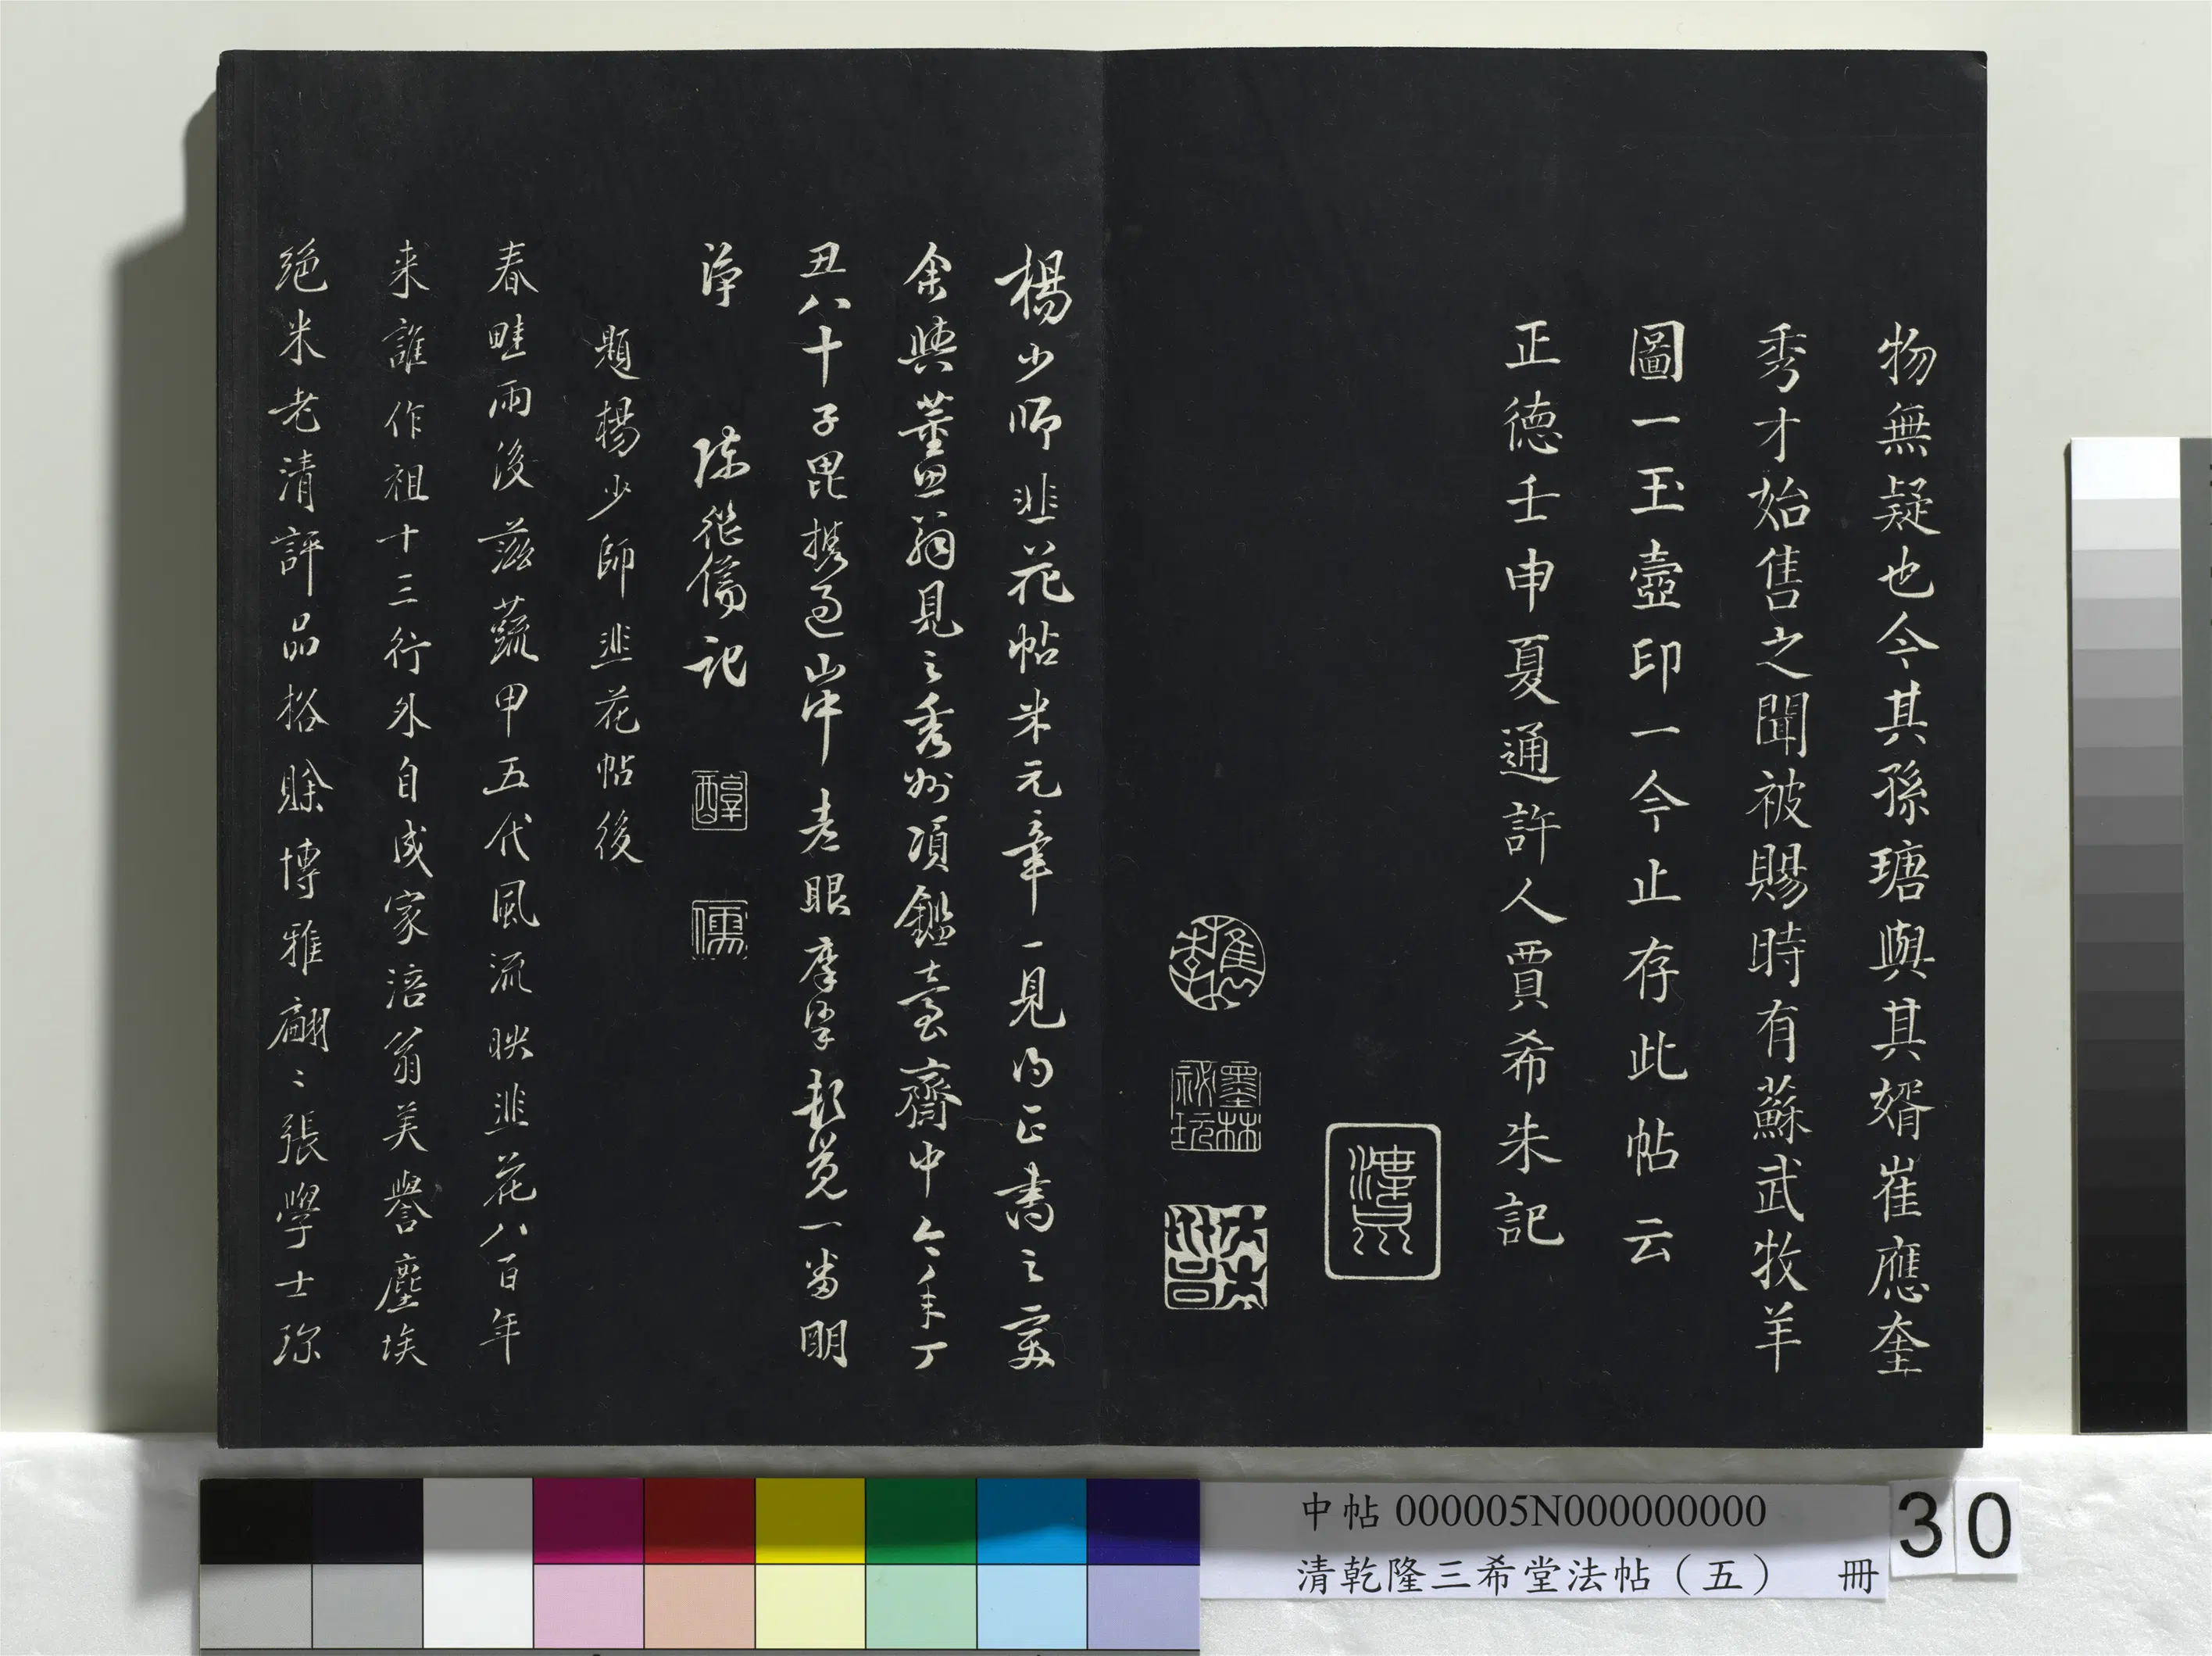 物無疑也今其孫瑭與其婿崔應奎
秀才始售之聞被賜時有蘇武牧羊
圖一玉壺印一今止存此帖云
正德壬申夏通許人賈希朱記
樵李
墨林祕玩
楊少師韭花帖米元章一見為正書之變
余與董思翁見之秀州項鑑臺齋中今年丁
丑八十子毘携過山中老眼摩挲靜覓一番明
淨 陳繼儒記
醇
儒
題楊少師韭花帖後
春畦雨後滋蔬甲五代風流映韭花八百年
来誰作祖十三行外自成家涪翁美譽塵埃
絕米老清評品格賒博雅翩〻張學士珎
中帖 000005N000000000
清乾隆三希堂法帖（五） 冊
30